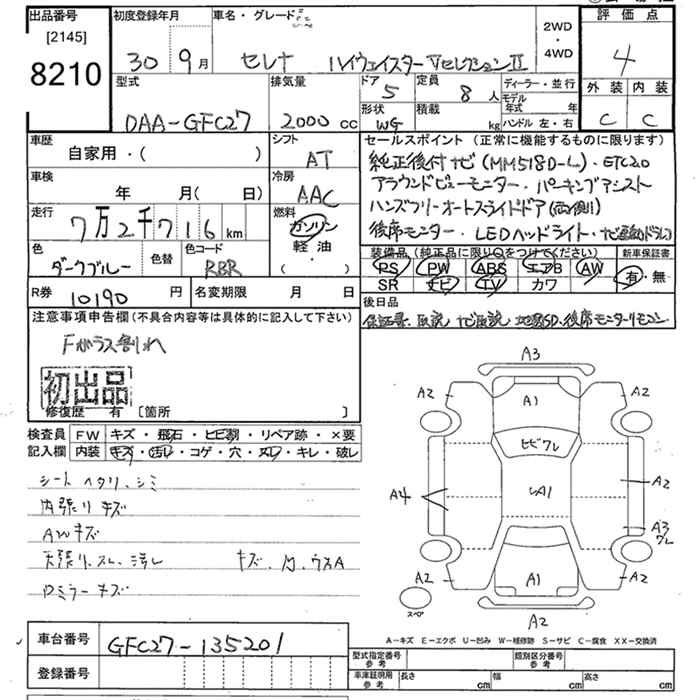 出品番号
[2145]
8210
初度登録年月
30年 9月
車名・グレード
セレナ ハイウェイスターVセレクションII
2WD
・
4WD
評価点
4
外装 内装
C C
型式
DAA-GFC27
排気量
2000 cc
ドア
5
定員
8人
ディーラー・並行
モデル年式 年
形状
WG
積載
kg
ハンドル 左・右
車歴
自家用・( )
シフト
AT
車検
年 月( 日)
冷房
AAC
走行
7万2千716km
燃料
ガソリン
軽油
・( )
色
ダークブルー
色替
色コード
RBR
R券
10190円
名変期限 月 日
セールスポイント (正常に機能するものに限ります)
純正後付ナビ(MM518D-L)・ETC2.0
アラウンドビューモニター・パーキングアシスト
ハンズフリーオートスライドドア(両側)
後席モニター・LEDヘッドライト・ナビ連動ドラレコ
装備品 (純正品に限り○をつけてください)
新車保証書
PS PW ABS エアB AW
SR ナビ TV カワ
有・無
後日品
保証書、取説、ナビ取説、地図SD、後席モニターリモコン
注意事項申告欄(不具合内容等は具体的に記入して下さい)
Fガラス割れ
初出品
修復歴 有 [箇所 ]
検査員
記入欄
FW キズ・飛石・ヒビ割・リペア跡・×要
内装 キズ・汚レ・コゲ・穴・スレ・キレ・破レ
シートヘタリ、シミ
内張りキズ
AWキズ
天張り、スレ、汚レ
ドミラーキズ
A3
A2 A1 A2
ヒビワレ
A4 A1 A2
A3
ワレ
A2 A1 A2
スペア
A2
A-キズ E-エクボ U-凹み W-補修跡 S-サビ C-腐食 XX-交換済
車台番号
GFC27-135201
登録番号
型式指定番号
参考
類別区分番号
参考
車庫証明用
参考
長さ cm 幅 cm 高さ cm